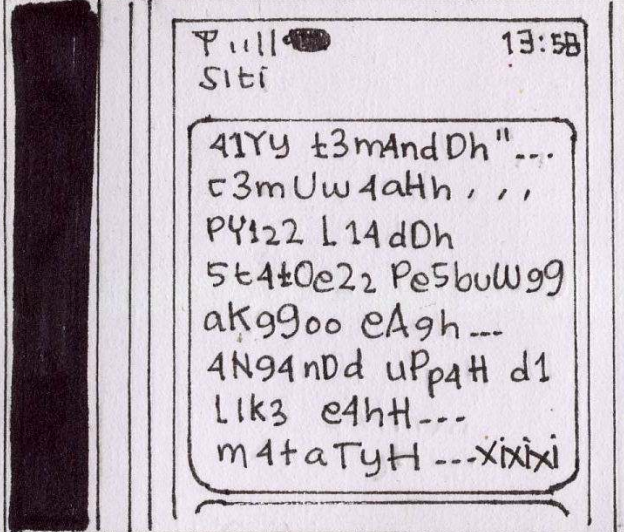 13:58
SiTi
41YY t3m4ndDh"...
c3mUw4aHh , , ,
PY122 L14dDh
5t4t0e22 Pe5buW99
aK99oo eA9h---
4N94nDd uPp4H d1
L1k3 e4hH---
m4taTyH ---xixixi